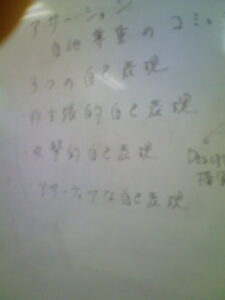 アサーション
自他尊重のコミュ
3つの自己表現
・非主張的自己表現
・攻撃的自己表現
・アサーティブな自己表現
Desc
描